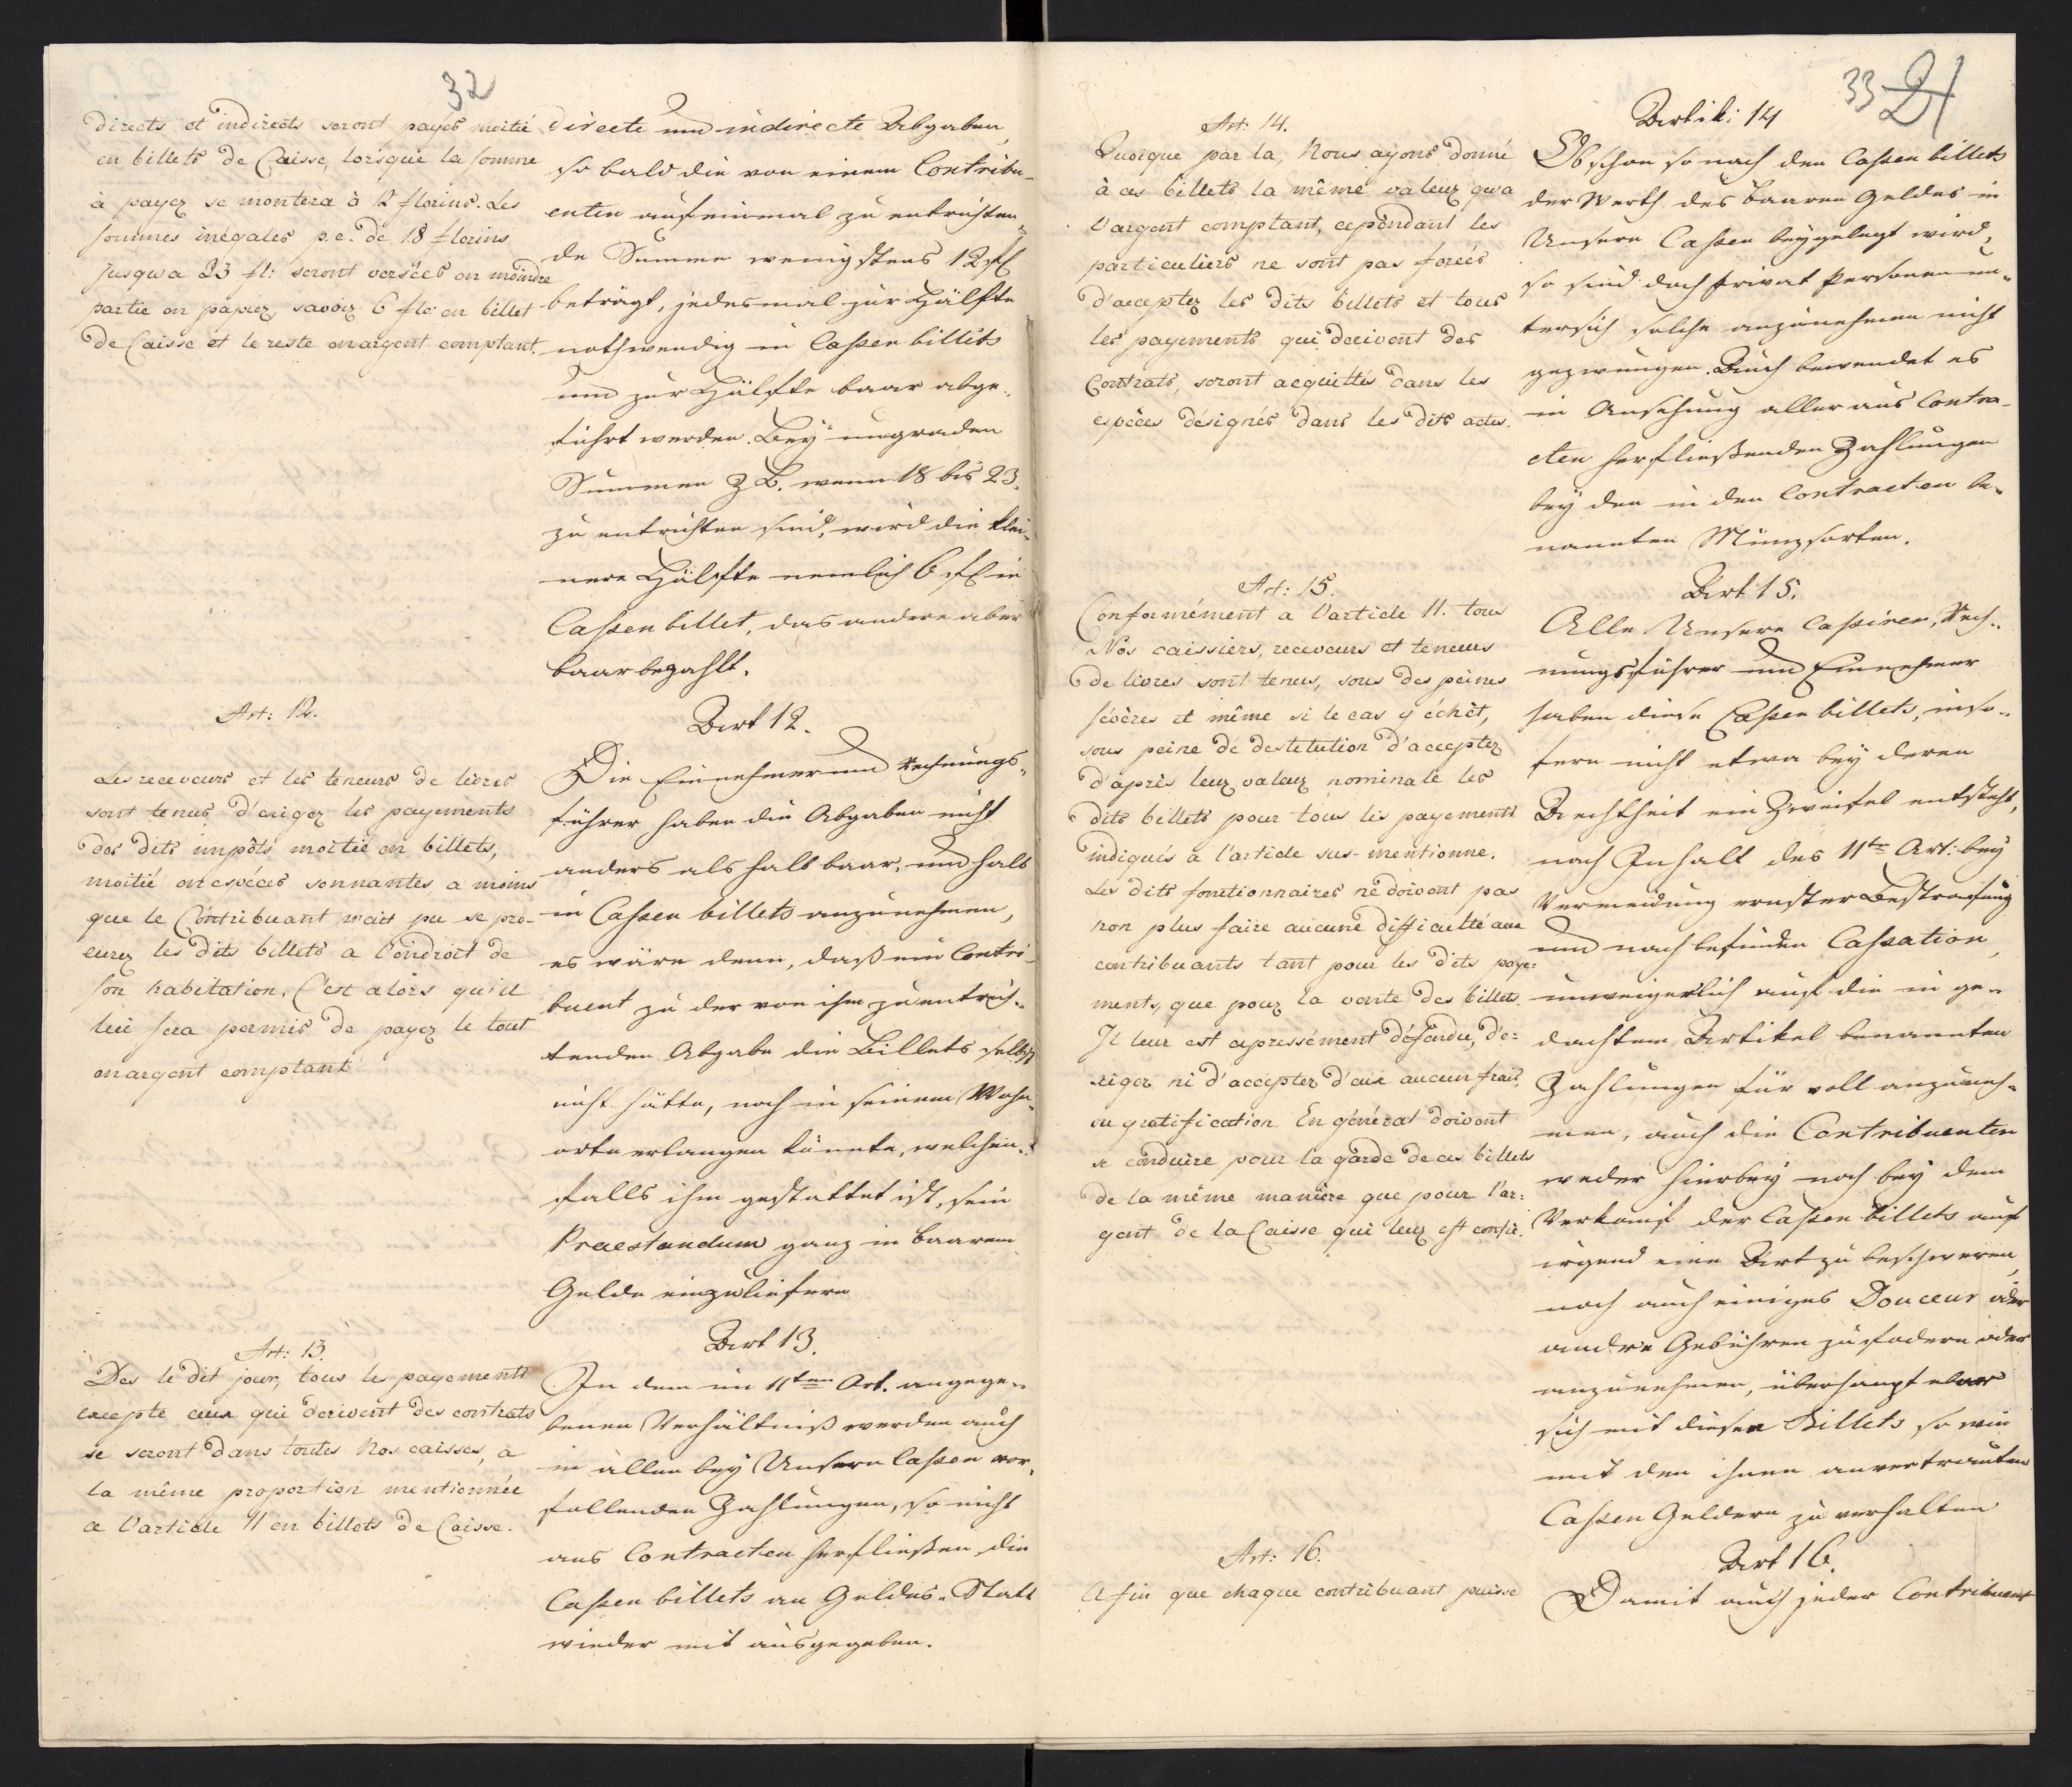 32
directs et indirects seront payés moitié
en billets de Caisse, lorsque la somme
à payer se montera à 12 florins. Les
sommes inégales p.e. de 18 florins
jusqu'a 23 fl: seront versées en moindre
partie en papier, savoir 6 flo: en billet
de Caisse et le reste en argent comptant.
Art: 12.
Les receveurs et les teneurs de livres
sont tenus d'exiger les payements
des dits impôts moitié en billets,
moitié en espéces sonnantes a moins
que le Contribuant n'ait pu se pro-
curer les dits billets a l'endroit de
son habitation. C'est alors qu'il
lui sera permis de payer le tout
en argent comptant
Art: 13.
Des le dit jour, tous les payements
excepte ceux qui derivent des contrats
se seront dans toutes Nos caisses, a
la même proportion mentionnée
a l'article 11 en billets de Caisse.
directe und indirecte Abgaben,
so bald die von einem Contribu-
enten auf einmal zu entrichten-
de Summe wenigstens 12 fl
beträgt, jedesmal zur Hälfte
nothwendig in Cassen billets
und zur Hälfte baar abge-
führt werden. Bey ungraden
Summen z B. wenn 18 bis 23.
zu entrichten sind, wird die klei-
nere Hälfte nemlich 6 fl in
Cassen billet, das andere aber
baar bezahlt.
Art 12.
Die Einnehmer und Rechnungs-
führer haben die Abgaben nicht
anders als halb baar, und halb
in Cassen billets anzunehmen,
es wäre denn, daß ein Contri-
buent zu der von ihm zu entrich-
tenden Abgabe die Billets selbst
nicht hätte, noch in seinem Wohn-
orte erlangen könnte, welchen-
falls ihm gestattet ist, sein
Praestandum ganz in baarem
Gelde einzuliefern
Art 13.
In dem im 11ten Art. angege-
benen Verhältniß werden auch
in allen bey Unsern Cassen vor-
fallenden Zahlungen, so nicht
aus Contracten herfließen, die
Cassen billets an Geldes-Statt
wieder mit ausgegeben.
33 21
Art: 14.
Quoique par la, Nous ayons donné
à ces billets la même valeur qu'a
l'argent comptant, cependant les
particuliers ne sont pas forcés
d'accepter les dits billets et tous
les payements qui derivent des
Contrats, seront acquittés dans les
espèces désignés dans les dits actes.
Art: 15.
Conformément a l'article 11. tous
Nos caissiers, receveurs et teneurs
de livres sont tenus, sous des peines
sévères et même si le cas y échêt,
sous peine de destitution d'accepter
d'après leur valeur nominale les
dits billets pour tous les payements
indiqués a l'article sus-mentionne.
Les dits fonctionnaires ne doivent pas
non plus faire aucune difficulté aux
contribuants tant pour les dits paye=
ments, que pour la vente des billets.
Il leur est expressément défendu, d'e=
xiger ni d'accepter d'eux aucun frais,
ou gratification En général doivent
se conduire pour la garde de ces billets
de la même manière que pour l'ar=
gent de la Caisse qui leur est confié.
Art: 16.
Afin que chaque contribuant puisse
Artik: 14
Obschon so nach den Cassen billets
der Werth des baaren Geldes in
Unsern Cassen beygelegt wird,
so sind doch privat Personen un-
ter sich solche anzunehmen nicht
gezwungen. Auch bewendet es
in Ansehung aller aus Contra-
cten herfließenden Zahlungen
bey den in den Contracten be-
nannten Münzsorten.
Art 15.
Alle Unsere Cassirer, Rech-
nungsführer und Einnehmer
haben diese Cassen billets, inso-
fern nicht etwa bey deren
Aechtheit ein Zweifel entsteht,
nach Inhalt des 11ten Art: bey
Vermeidung ernster Bestrafung
und nach befinden Cassation,
unweigerlich auf die in ge-
dachtem Artikel benannten
Zahlungen für voll anzuneh-
men, auch die Contribuenten
weder hierbey noch bey dem
Verkauf der Cassen billets auf
irgend eine Art zu beschweren,
noch auch einiges Douceur oder
andre Gebühren zu fodern oder
anzunehmen, überhaupt aber
sich mit diesen Billets so wie
mit den ihnen anvertrauten
Cassen Geldern zu verhalten
Art 16.
Damit auch jeder Contribuent